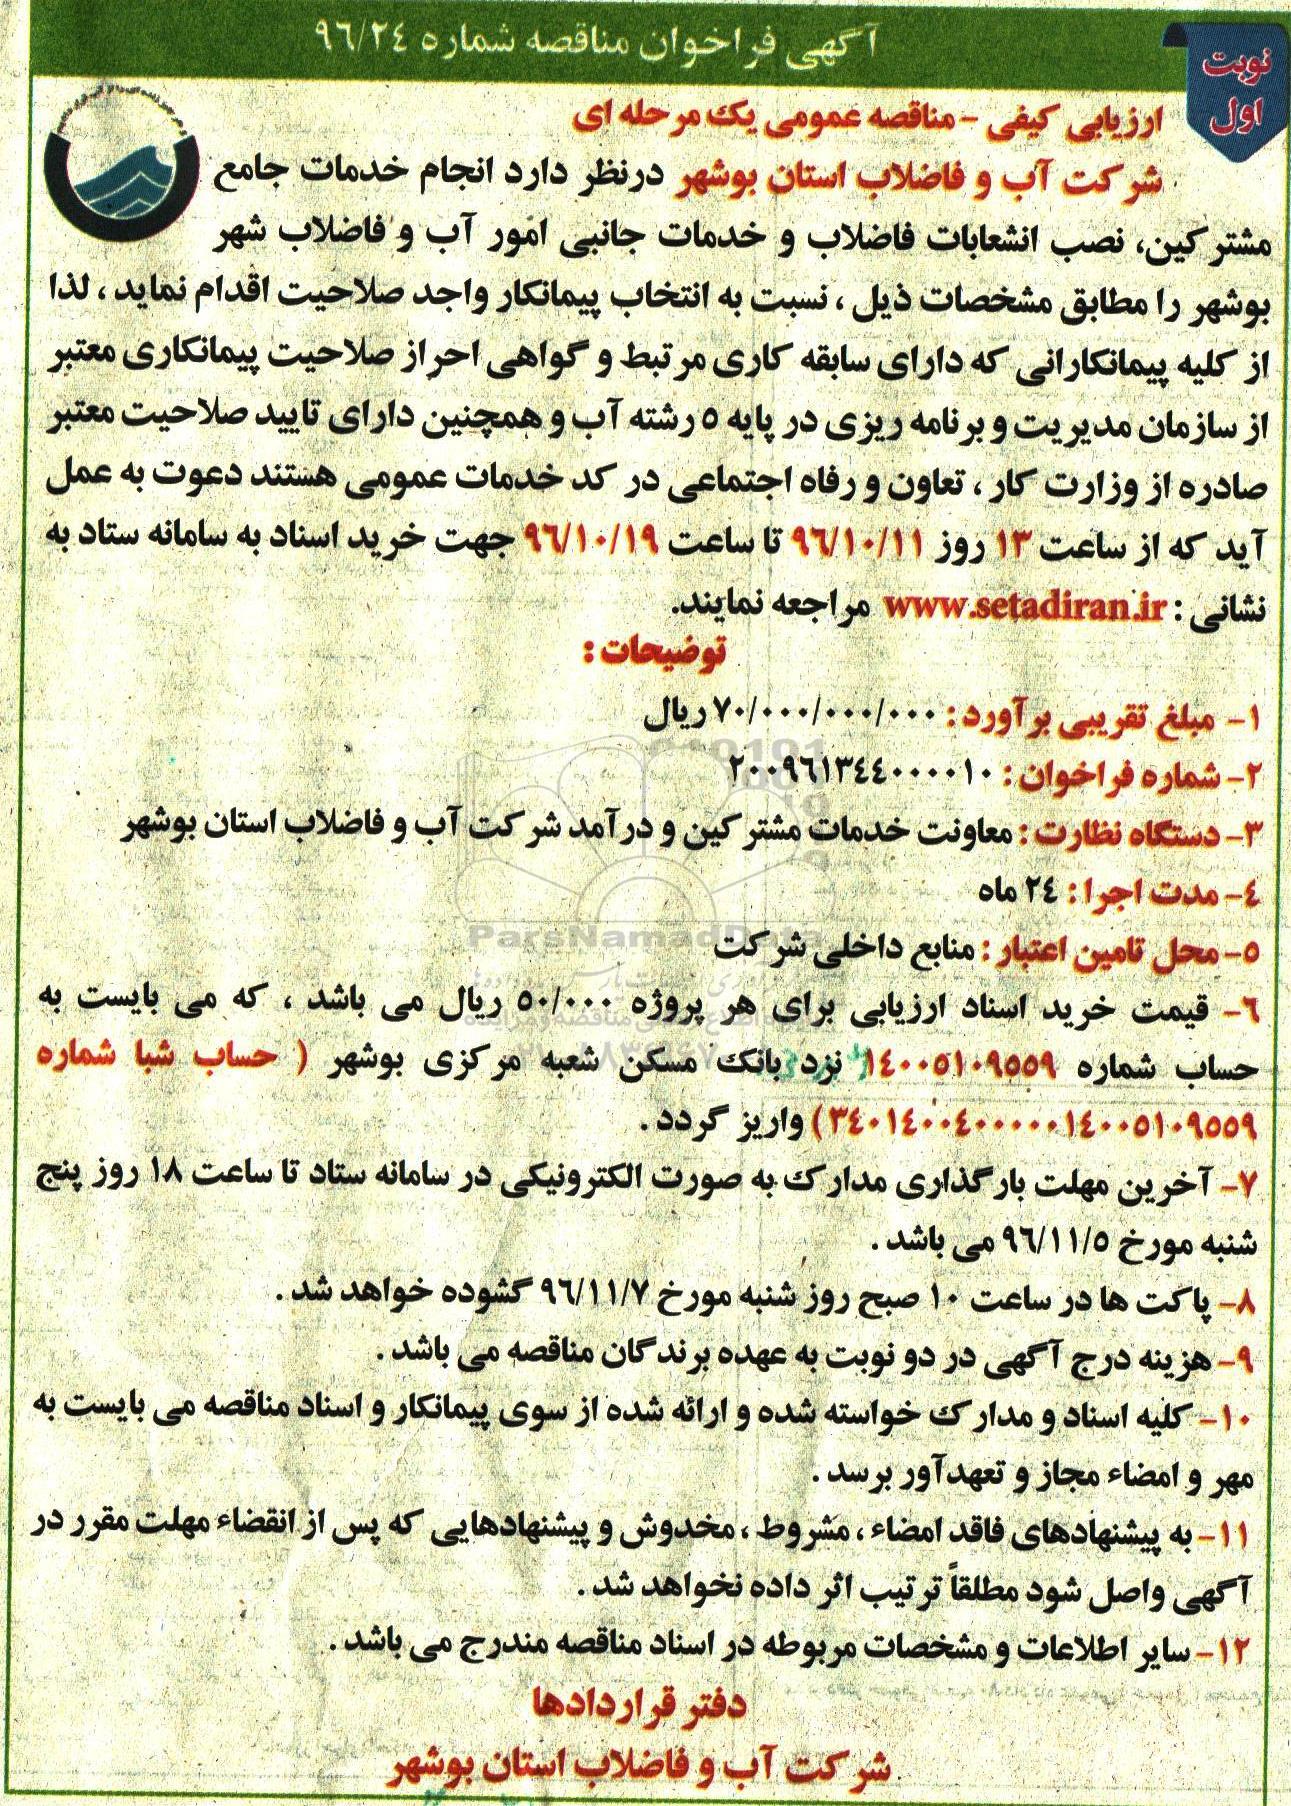 آگهی فراخوان مناقصه شماره ۹۶/۲۴
نوبت
اول
ارزیابی کیفی - مناقصه عمومی یک مرحله ای
شرکت آب و فاضلاب استان بوشهر درنظر دارد انجام خدمات جامع
مشترکین، نصب انشعابات فاضلاب و خدمات جانبی امور آب و فاضلاب شهر
بوشهر را مطابق مشخصات ذیل ، نسبت به انتخاب پیمانکار واجد صلاحیت اقدام نماید ، لذا
از کلیه پیمانکارانی که دارای سابقه کاری مرتبط و گواهی احراز صلاحیت پیمانکاری معتبر
از سازمان مدیریت و برنامه ریزی در پایه ۵ رشته آب و همچنین دارای تایید صلاحیت معتبر
صادره از وزارت کار ، تعاون و رفاه اجتماعی در کد خدمات عمومی هستند دعوت به عمل
آید که از ساعت ۱۳ روز ۹۶/۱۰/۱۱ تا ساعت ۹۶/۱۰/۱۹ جهت خرید اسناد به سامانه ستاد به
نشانی : www.setadiran.ir مراجعه نمایند.
توضیحات :
۱- مبلغ تقریبی برآورد : ۷۰/۰۰۰/۰۰۰/۰۰۰ ریال
۲- شماره فراخوان : ۲۰۰۹۶۱۳۴۴۰۰۰۰۱۰
۳- دستگاه نظارت : معاونت خدمات مشترکین و درآمد شرکت آب و فاضلاب استان بوشهر
۴- مدت اجرا : ۲۴ ماه
ParsNamadData
۵- محل تامین اعتبار : منابع داخلی شرکت
۶- قیمت خرید اسناد ارزیابی برای هر پروژه ۵۰/۰۰۰ ریال می باشد ، که می بایست به
حساب شماره ۱۴۰۰۵۱۰۹۵۵۹ نزد بانک مسکن شعبه مرکزی بوشهر ( حساب شبا شماره
۳۴۰۱۴۰۰۴۰۰۰۰۰۱۴۰۰۵۱۰۹۵۵۹) واریز گردد .
۷- آخرین مهلت بارگذاری مدارک به صورت الکترونیکی در سامانه ستاد تا ساعت ۱۸ روز پنج
شنبه مورخ ۹۶/۱۱/۵ می باشد .
۸- پاکت ها در ساعت ۱۰ صبح روز شنبه مورخ ۹۶/۱۱/۷ گشوده خواهد شد .
۹- هزینه درج آگهی در دو نوبت به عهده برندگان مناقصه می باشد .
۱۰- کلیه اسناد و مدارک خواسته شده و ارائه شده از سوی پیمانکار و اسناد مناقصه می بایست به
مهر و امضاء مجاز و تعهدآور برسد .
۱۱- به پیشنهادهای فاقد امضاء ، مشروط ، مخدوش و پیشنهادهایی که پس از انقضاء مهلت مقرر در
آگهی واصل شود مطلقاً ترتیب اثر داده نخواهد شد .
۱۲- سایر اطلاعات و مشخصات مربوطه در اسناد مناقصه مندرج می باشد .
دفتر قراردادها
شرکت آب و فاضلاب استان بوشهر